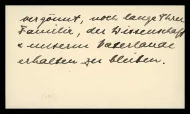 vergönnt, noch lange Ihrer
Familie, der Wissenschaft
& unserem Vaterlande
erhalten zu bleiben.